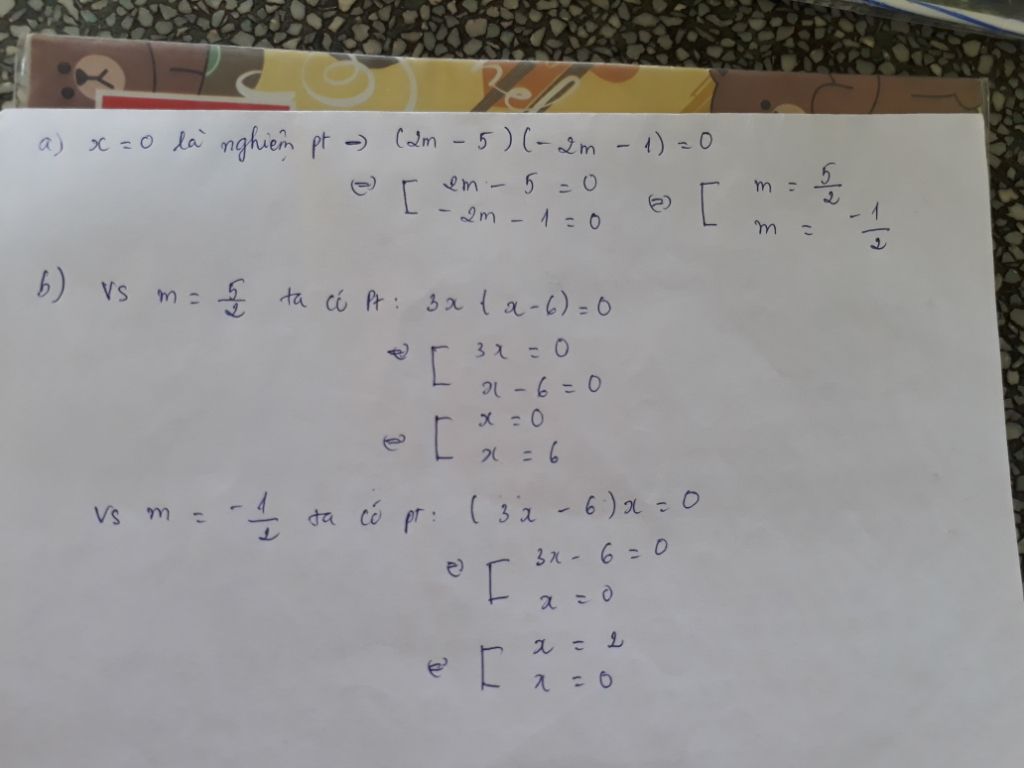 a) x = 0 là nghiệm pt → (2m - 5)(-2m - 1) = 0
⇔ [ 2m - 5 = 0 ⇔ [ m = 5/2
-2m - 1 = 0 m = -1/2
b) vs m = 5/2 ta có Pt: 3x(x - 6) = 0
⇔ [ 3x = 0
x - 6 = 0
⇔ [ x = 0
x = 6
vs m = -1/2 ta có pt: (3x - 6)x = 0
⇔ [ 3x - 6 = 0
x = 0
⇔ [ x = 2
x = 0